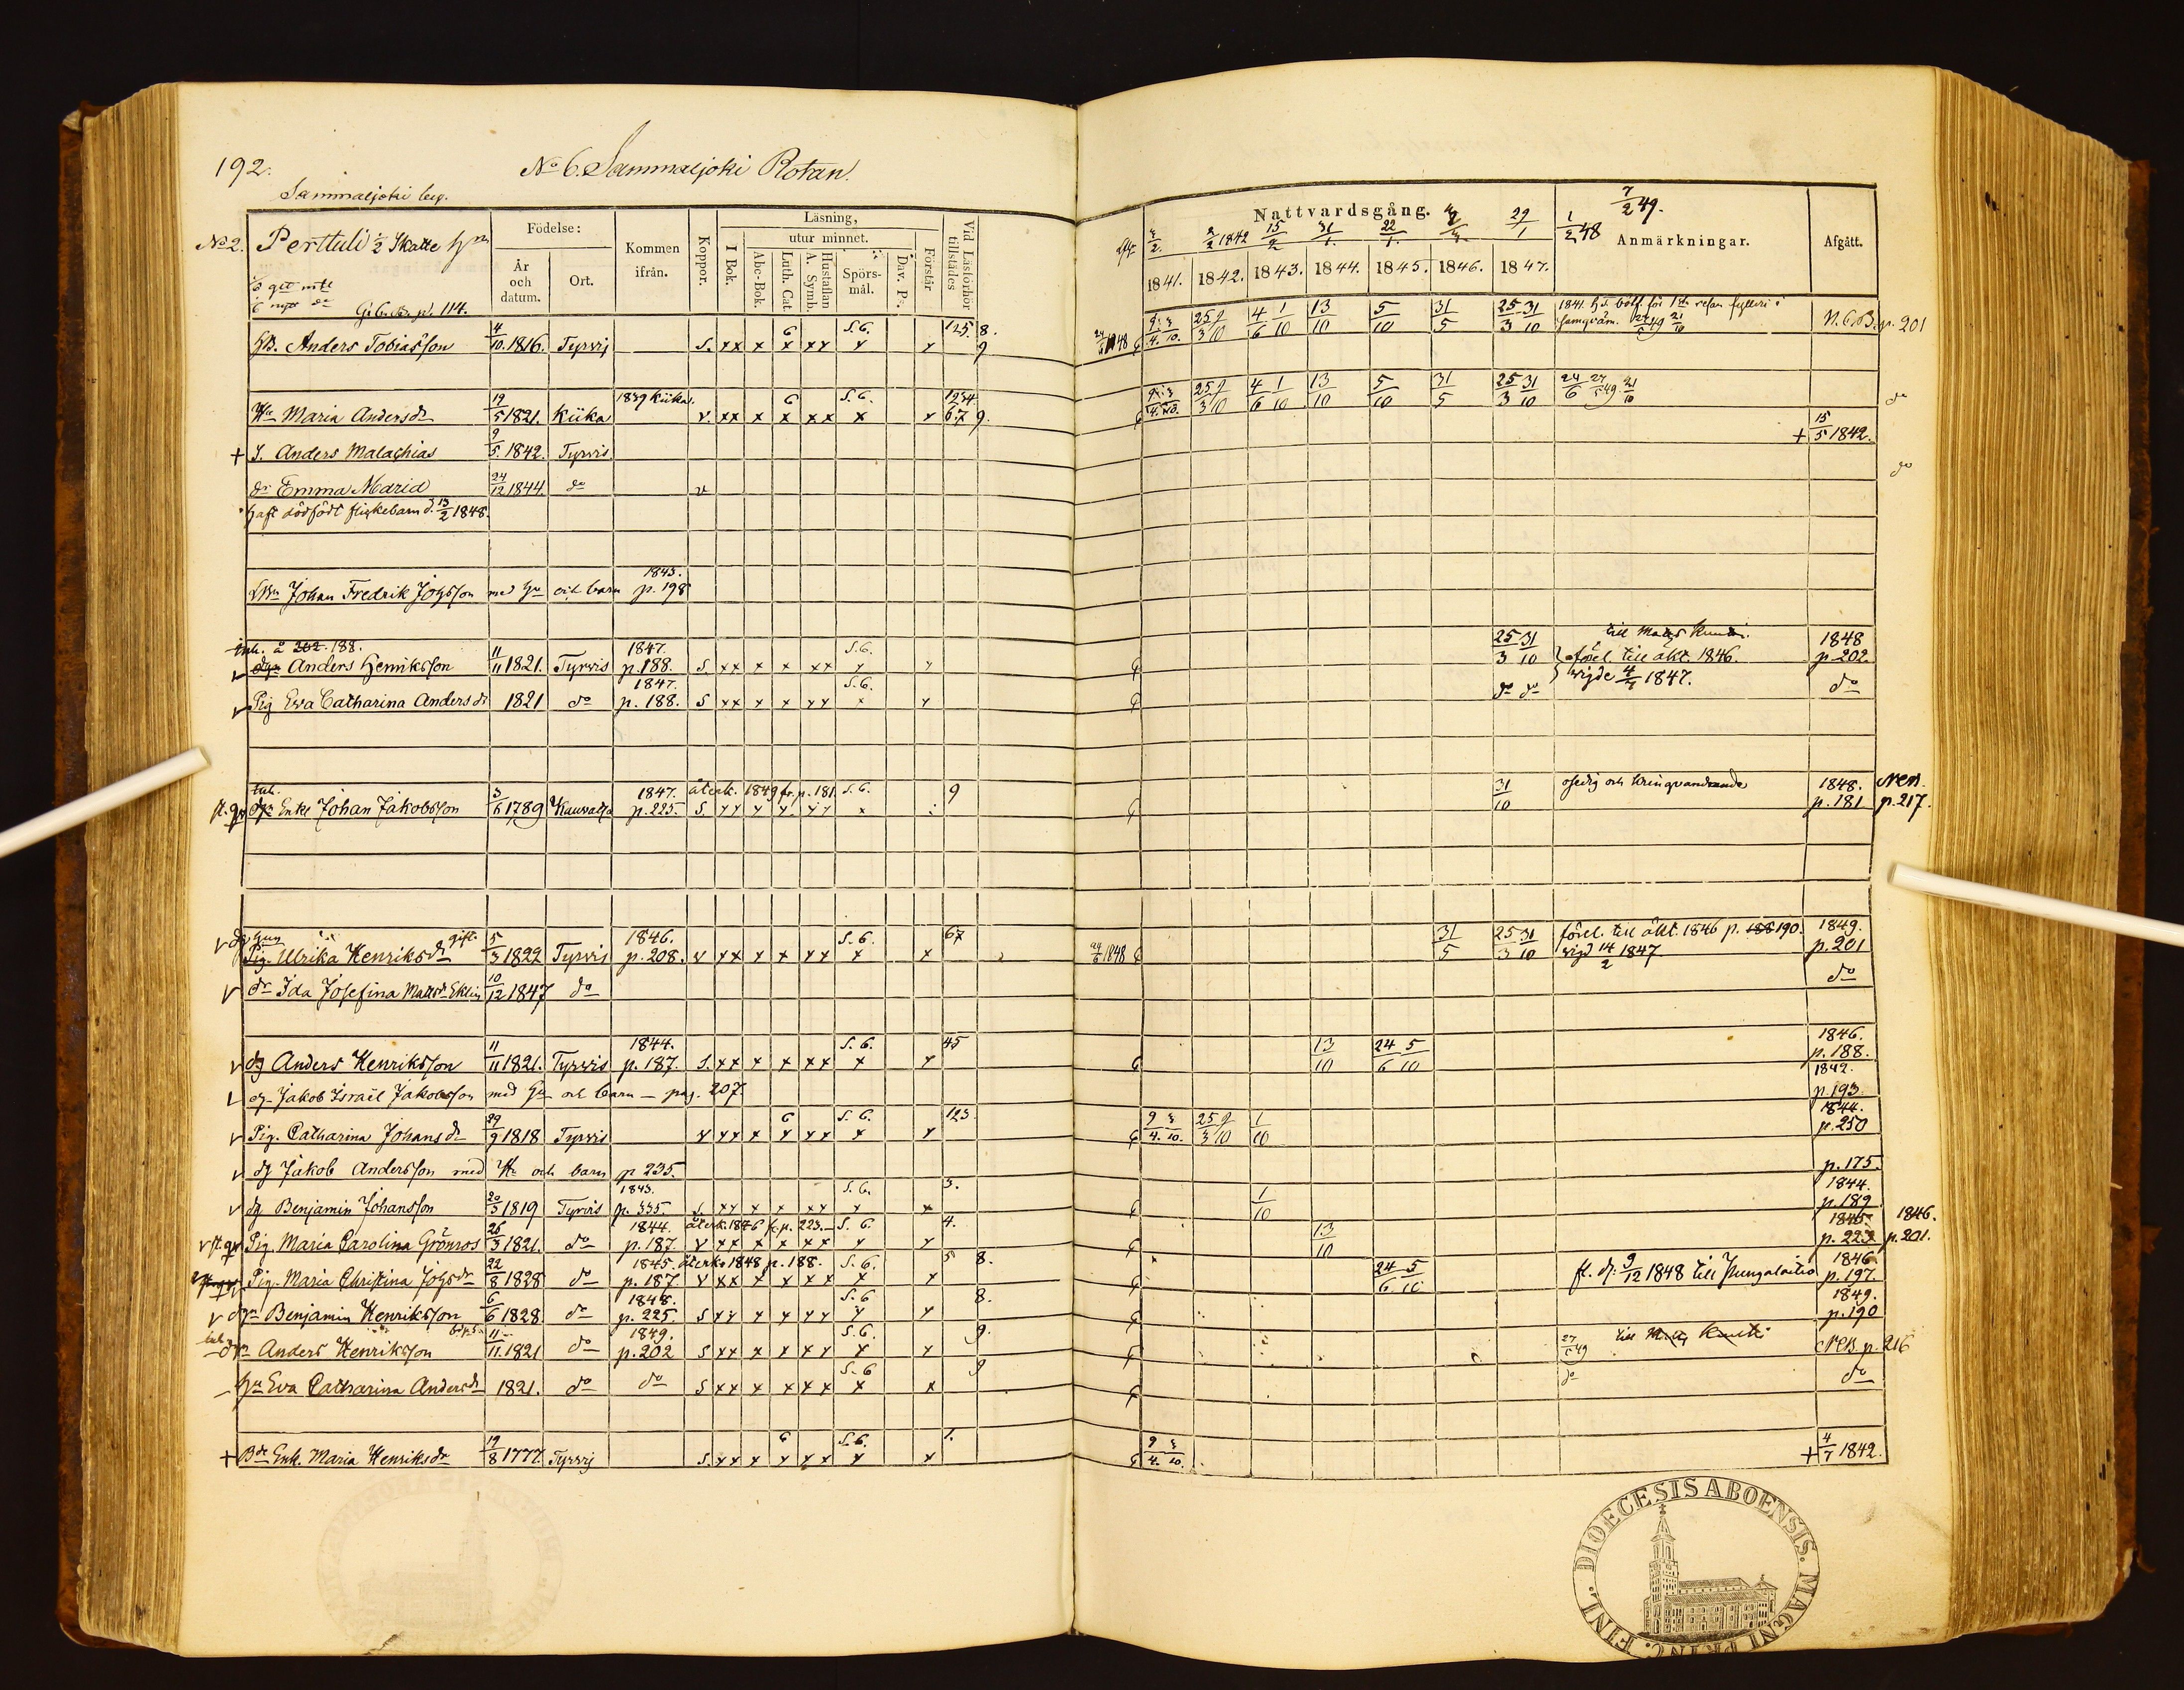 192.
No 6. Sammaljoki Rotan.
Sammaljoki by.
No 2. Perttuli 1/2 Skatte Hn
G. C. B. p. 114.
Födelse: År och datum. Ort.
Kommen ifrån.
Koppor.
Läsning,
I Bok.
utur minnet.
Abc-Bok. Luth. Cat Hustaflan A. Symb. Spörsmål. Dav. Ps. Förstår
Vid Läsförhör tillstädes
Nattvardsgång.
3/2. 2/2 1842 15/2 31/1. 22/1. 29/1 1/2 48 7/2 49.
1841. 1842. 1843. 1844. 1845. 1846. 1847.
Anmärkningar.
Afgått.
Hb. Anders Tobiasson 4/10. 1816. Tyrvis S. xx x x xx x x 6 S.6. 125 8. 9 24/6 1848 25 9 3/10 4 1 6 10 13/10 5/10 31/5 25 31 3 10 N.C.B. p. 201
Hu Maria Andersdr 19/5 1821. Kiika 1839 Kiika v. xx x x xx x x 6 S.6. 1234 67 9. 25 9 3/10 4 1 6 10 13/10 5/10 31/5 25 31 3 10 24/6 27/5 49. 21/10 do
+ S. Anders Malachias 9/5. 1842. Tyrvis + 15/5 1842.
dr Emma Maria 24/12 1844. do v do
haft dödfödt flickebarn d. 13/2 1848.
Johan Fredrik Johsson med Hu och barn 1843. p. 198
inh. å 202. 188.
Anders Henriksson 11/11 1821. Tyrvis 1847. p. 188. S xx x x xx x x S.6. 25 31 3 10 förel. till äkt. 1846. 1848 p. 202.
Pig Eva Catharina Andersdr 1821 do 1847. p. 188. S xx x x xx x x S.6. do do vigde 4/4 1847. do
inh.
Enkl Johan Jakobsson 3/6 1789 Kauvatsa 1847. p. 225. återk. 1849 fr. p. 181. S.6. 9 31/10 osedig och kringvandrande 1848. p. 181 NCB. p. 217.
Pig. Ulrika Henriksdr gift. 5/3 1822 Tyrvis 1846. p. 208. v xx x x xx x x S.6. 67 24/6 1848 31/5 25 31 3 10 förel. till äkt. 1846 p. 188 190. vigd 14/2 1847 1849. p. 201
dr Ida Josefina Mattsdr Eklin 10/12 1847 do do
dg Anders Henriksson 11/11 1821. Tyrvis 1844. p. 187. S. xx x x xx x x S.6. 45 13/10 24 5 6 10 1846. p. 188.
dg Jakob Israel Jakobsson med Hu och barn — pag. 207. 1842. p. 193.
Pig. Catharina Johansdr 29/9 1818 Tyrvis v xx x x xx x x 6 S.6. 123 9 3 4. 10. 25 9 3/10 1/10 1844. p. 250
dg Jakob Andersson med Hu och barn p 235. p. 175.
dg Benjamin Johansson 20/3 1819 Tyrvis 1843. p. 335. S. xx x x xx x x S.6. 3. 1/10 1844. p. 189
Pig. Maria Carolina Grönros 26/3 1821. do 1844. p. 187. återk. 1846 fr. p. 223. S.6. 4. 13/10 1845. p. 223 1846. p. 201.
Pig. Maria Christina Johsdr 22/8 1828 do 1845. p. 187. återk. 1848 p. 188. S.6. 5 8. 24 5 6 10 fl. d. 9/12 1848 till Pungalaitio 1846 p. 197.
Benjamin Henriksson 6/6 1828 do 1848. p. 225. S xx x x xx x x S.6 8. 1849. p. 190
Anders Henriksson 11/11. 1821 do 1849. p. 202 S xx x x xx x x S.6. 9. 27/5 49 NCB. p. 216
Hu Eva Catharina Andersdr 1821. do do S xx x x xx x x S.6 9 do do
+ Enk. Maria Henriksdr 19/8 1777. Tyrvis S. xx x x xx x x 6 S.6. 1. 9 3 4. 10. + 4/7 1842.
DIOECESIS ABOENSIS. MAGNI PRINC. FINL.